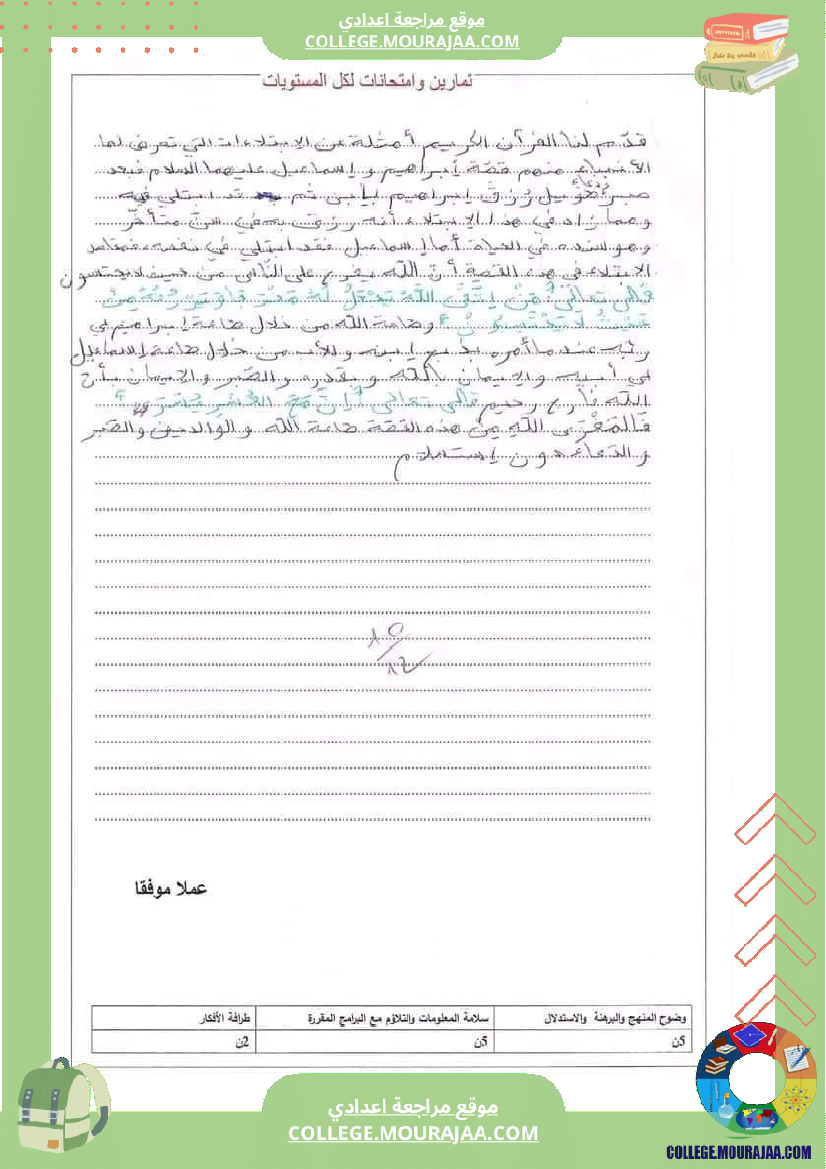 موقع مراجعة اعدادي
COLLEGE.MOURAJAA.COM
تمارين وامتحانات لكل المستويات
قدّم لنا القرآن الكريم أمثلة عن الابتلاءات التي تعرض لها
الأنبياء منهم قصّة إبراهيم وإسماعيل عليهما السلام فبعد
صبر طويل ودعاء رُزق إبراهيم بإبن ثم قد ابتلي فيه
ومما زاد في هذا الابتلاء أنه رزق به في سنّ متأخّر
وهو سنده في الحياة أما إسماعيل فقد ابتلي في نفسه فمقاصد
الابتلاء في هذه القصة أنّ الله يفرج على النّاس من حيث لا يحتسبون
قال تعالى وَمَنْ يَتَّقِ اللَّهَ يَجْعَلْ لَهُ مَخْرَجًا وَيَرْزُقْهُ مِنْ
حَيْثُ لَا يَحْتَسِبُ وطاعة الله من خلال طاعة إبراهيم لـي
ربّه عندما أمره بذبح إبنه وللأب من خلال طاعة إسماعيل
لـي أبيه والإيمان بالله وبقدره والصّبر والإيمان بأنّ
الله فارج رحيم قال تعالى "إنّ مَعَ العُسْرِ يُسْرًا"
فالمغزى الله مِنْ هذه القصة طاعة الله والوالدين والصّبر
والدّعاء دون إستسلام
10/12
عملا موفقا
وضوح المنهج والبرهنة والاستدلال | سلامة المعلومات والتلاؤم مع البرامج المقررة | طرافة الأفكار
5ن | 5ن | 2ن
موقع مراجعة اعدادي
COLLEGE.MOURAJAA.COM
COLLEGE.MOURAJAA.COM